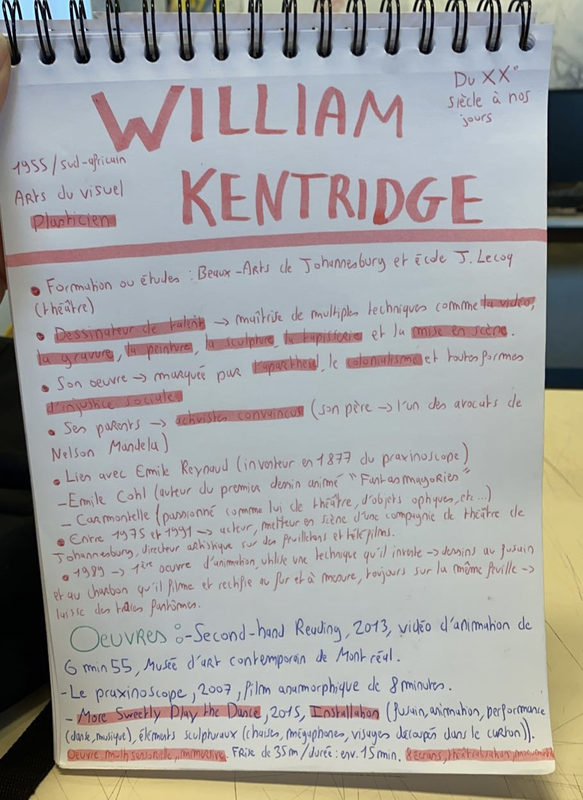 Du XX°
siècle à nos
jours
WILLIAM
KENTRIDGE
1955/sud-africain
Arts du visuel
Plasticien
• Formation ou études : Beaux-Arts de Johannesburg et école J. Lecoq
(théâtre)
• Dessinateur de talent → maîtrise de multiples techniques comme la vidéo,
la gravure, la peinture, la sculpture, la tapisserie et la mise en scène.
• Son oeuvre → marquée par l'apartheid, le colonialisme et toutes formes
d'injustice sociales
• Ses parents → activistes convaincus (son père → l'un des avocats de
Nelson Mandela)
• Lien avec Emile Reynaud (inventeur en 1877 du praxinoscope)
- Emile Cohl (auteur du premier dessin animé "Fantasmagories"
- Carmontelle (passionné comme lui de théâtre, d'objets optiques, etc...)
• Entre 1975 et 1991 → acteur, metteur en scène d'une compagnie de théâtre de
Johannesburg, directeur artistique sur des feuilletons et téléfilms.
• 1989 → 1ère oeuvre d'animation, utilise une technique qu'il invente → dessins au fusain
et au charbon qu'il filme et rectifie au fur et à mesure, toujours sur la même feuille →
laisse des traces fantômes.
OEUVRES : - Second-hand Reading, 2013, vidéo d'animation de
6 min 55, Musée d'art contemporain de Montréal.
- Le praxinoscope, 2007, film anamorphique de 8 minutes.
- More Sweetly Play the Dance, 2015, Installation (fusain, animation, performance
(danse, musique), éléments sculpturaux (chaises, mégaphones, visages découpés dans le carton)).
Oeuvre multi sensorielle, immersive. Frise de 35m/durée: env. 15 min. 8 écrans, théâtralisation,